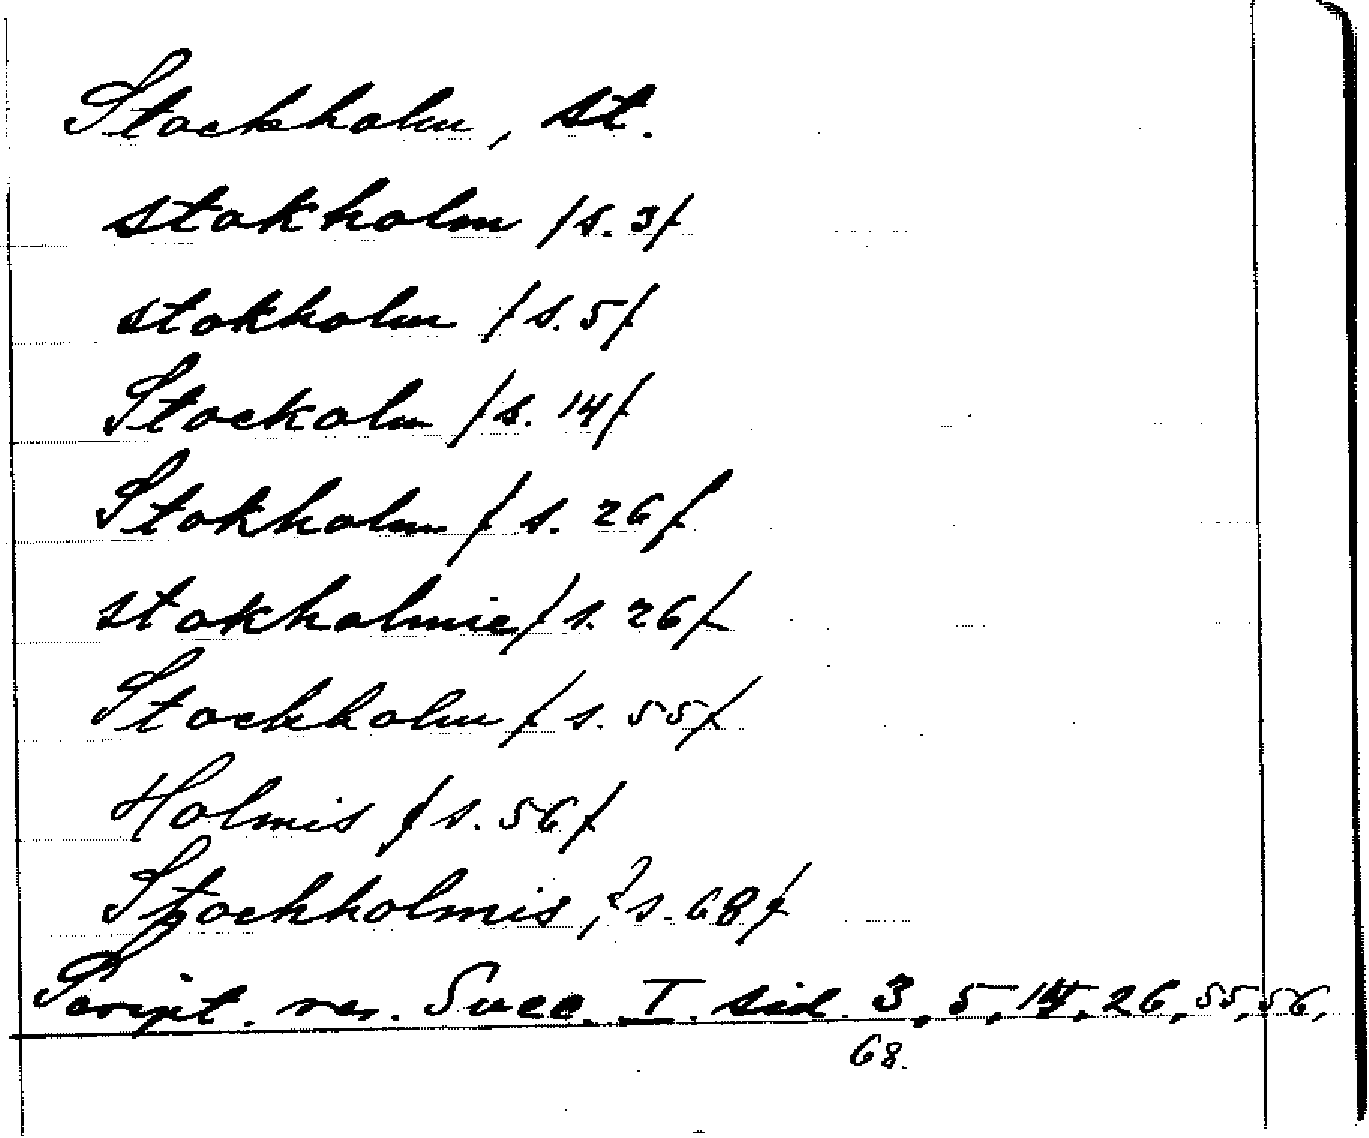 Stockholm, st.
stokholm /s. 3/
stokholm /s. 5/
Stockolm /s. 14/
Stokholm /s. 26/
stokholmie /s. 26/
Stockholm /s. 55/
Holmis /s. 56/
Stockholmis, /s. 68/
Script. rer. Svec. I. sid. 3, 5, 14, 26, 55, 56,
68.